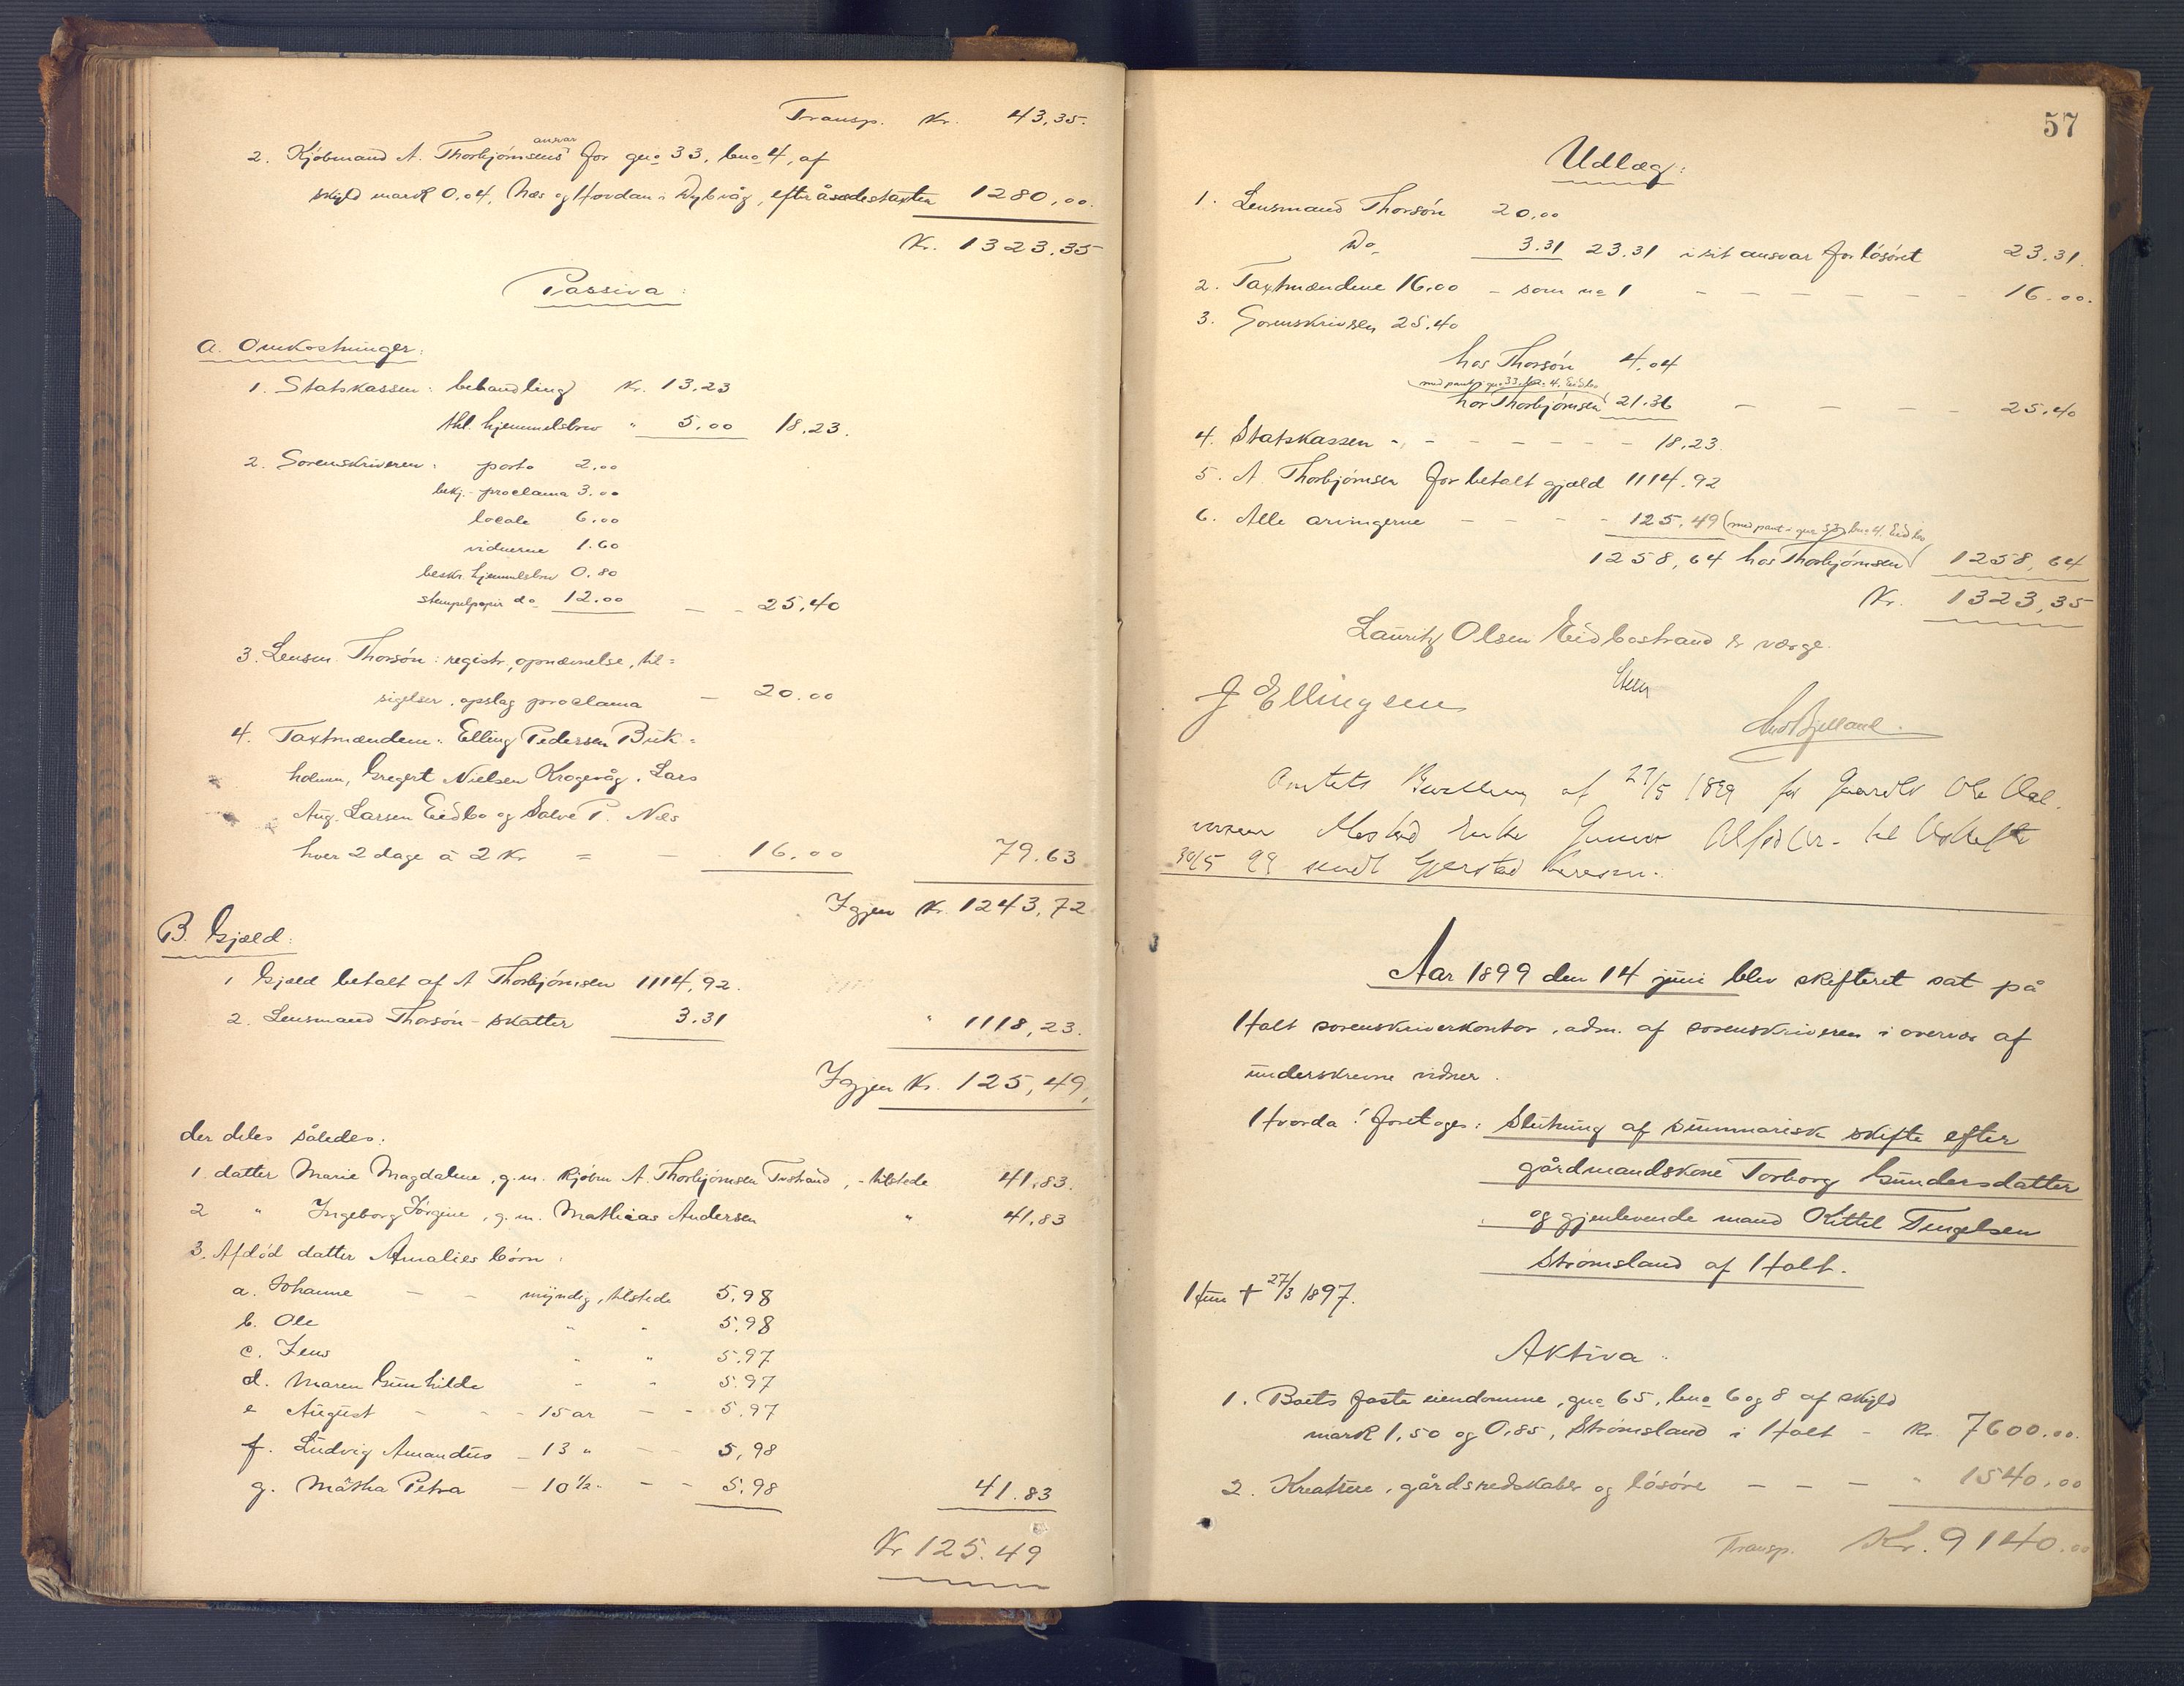 Transp. Kr. 43,35.
2. Kjöbmand A. Thorbjörnsens ansvar for gno 33, bno 4, af
skyld mark 0.04, Næs og Hovdan i Dybvåg, efter åsædestaxten 1280,00.
Kr. 1323,35
Passiva:
a. Omkostninger:
1. Statskassen: behandling Kr. 13.23
thl. hjemmelsbrev " 5.00 18.23.
2. Sorenskriveren: porto 2.00
bekj. proclama 3.00
locale 6.00
vidnerne 1.60
beskr. hjemmelsbrev 0.80
stempelpapir do 12.00 - - 25,40
3. Lensm. Thorsön: registr, opnævnelse, til=
sigelser, opslag proclama - 20.00
4. Taxtmændene: Elling Pedersen Buk=
holmen, Gregert Nielsen Krogevåg, Lars
Aug. Larsen Eidbo og Salve P. Næs
hver 2 dage à 2 Kr = - 16,00 79.63
Igjen Kr. 1243,72
B. Gjæld:
1 Gjæld betalt af A Thorbjörnsen 1114,92.
2. Lensmand Thorsön - skatter 3.31 " 1118,23.
Igjen Kr. 125,49,
der deles således:
1. datter Marie Magdalene, g.m. Kjöbm A. Thorbjörnsen Tvstrand, - tilstede 41,83.
2 " Ingeborg Jörgine, g.m. Mathias Andersen " 41,83
3. Afdöd datter Amalies börn:
a. Johanne - - myndig, tilstede 5,98
b. Ole " " 5.98
c. Jens " " 5.97
d. Maren Gunhilde " " 5.97
e August - - - 15 ar - - 5.97
f. Ludvig Amandus - 13 " - - 5,98
g. Mätha Petra - 10½ " - - 5.98 41.83
Kr 125.49
57
Udlæg:
1. Lensmand Thorsön 20.00
Do 3.31 23.31 i sit ansvar for lösöret 23.31.
2. Taxtmændene 16,00 - som no 1 - - - - - - 16.00.
3. Sorenskriveren 25.40
hos Thorsön 4.04
(med pant i gno 33, bno 4. Eidbo
hos Thorbjörnsen) 21.36 - - - - 25.40
4. Statskassen - - - - - - - 18,23
5. A. Thorbjörnsen for betalt gjæld 1114.92
6. Alle arvingerne - - - - 125,49 (med pant i gno 33, bno 4. Eidbo
1258,64 hos Thorbjörnsen) 1258,64
Kr. 1323,35
Lauritz Olsen Eidbostrand er værge.
J Ellingsen
Amtets Bevilling af 27/5 1899 for
30/5 99 sendt Gjerstad
Aar 1899 den 14 juni blev skifteret sat på
Holt sorenskriverkontor, adm. af sorenskriveren i overvær af
underskrevne vidner.
Hvorda! foretoges: Slutning af summarisk skifte efter
gårdmandskone Torborg Gundersdatter
og gjenlevende mand Kittil Tengelsen
Strömsland af Holt.
Hun + 27/3 1897.
Aktiva:
1. Boets faste eiendomme, gno 65, bno 6 og 8 af skyld
mark 1,50 og 0,85, Strömsland i Holt - Kr. 7600.00.
2. Kreature, gårdsredskaber og lösöre - - - " 1540,00
Transp. Kr. 9140.00